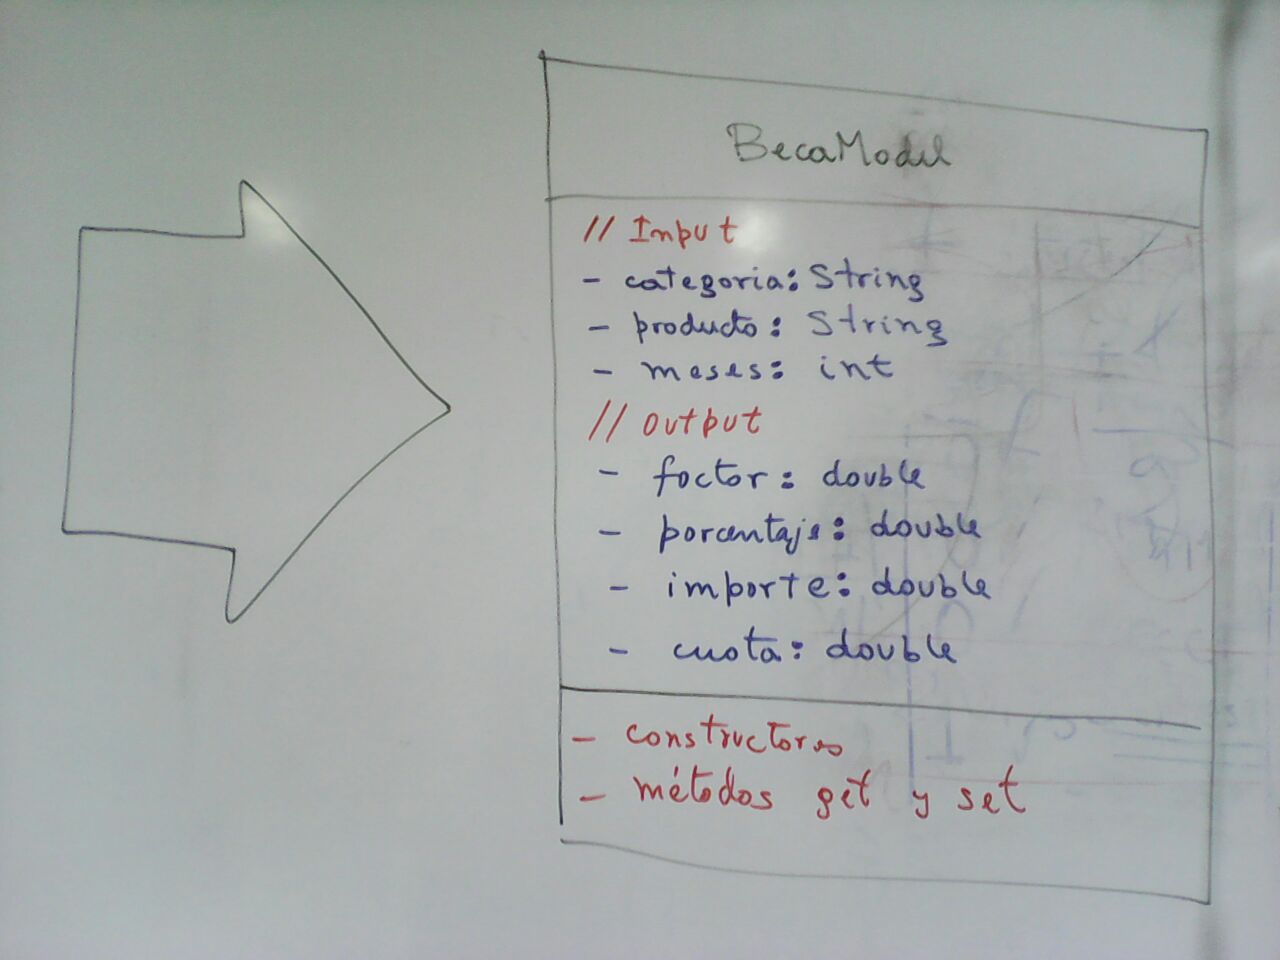 BecaModel
// Input
- categoria: String
- producto: String
- meses: int
// Output
- factor: double
- porcentaje: double
- importe: double
- cuota: double
- constructores
- métodos get y set